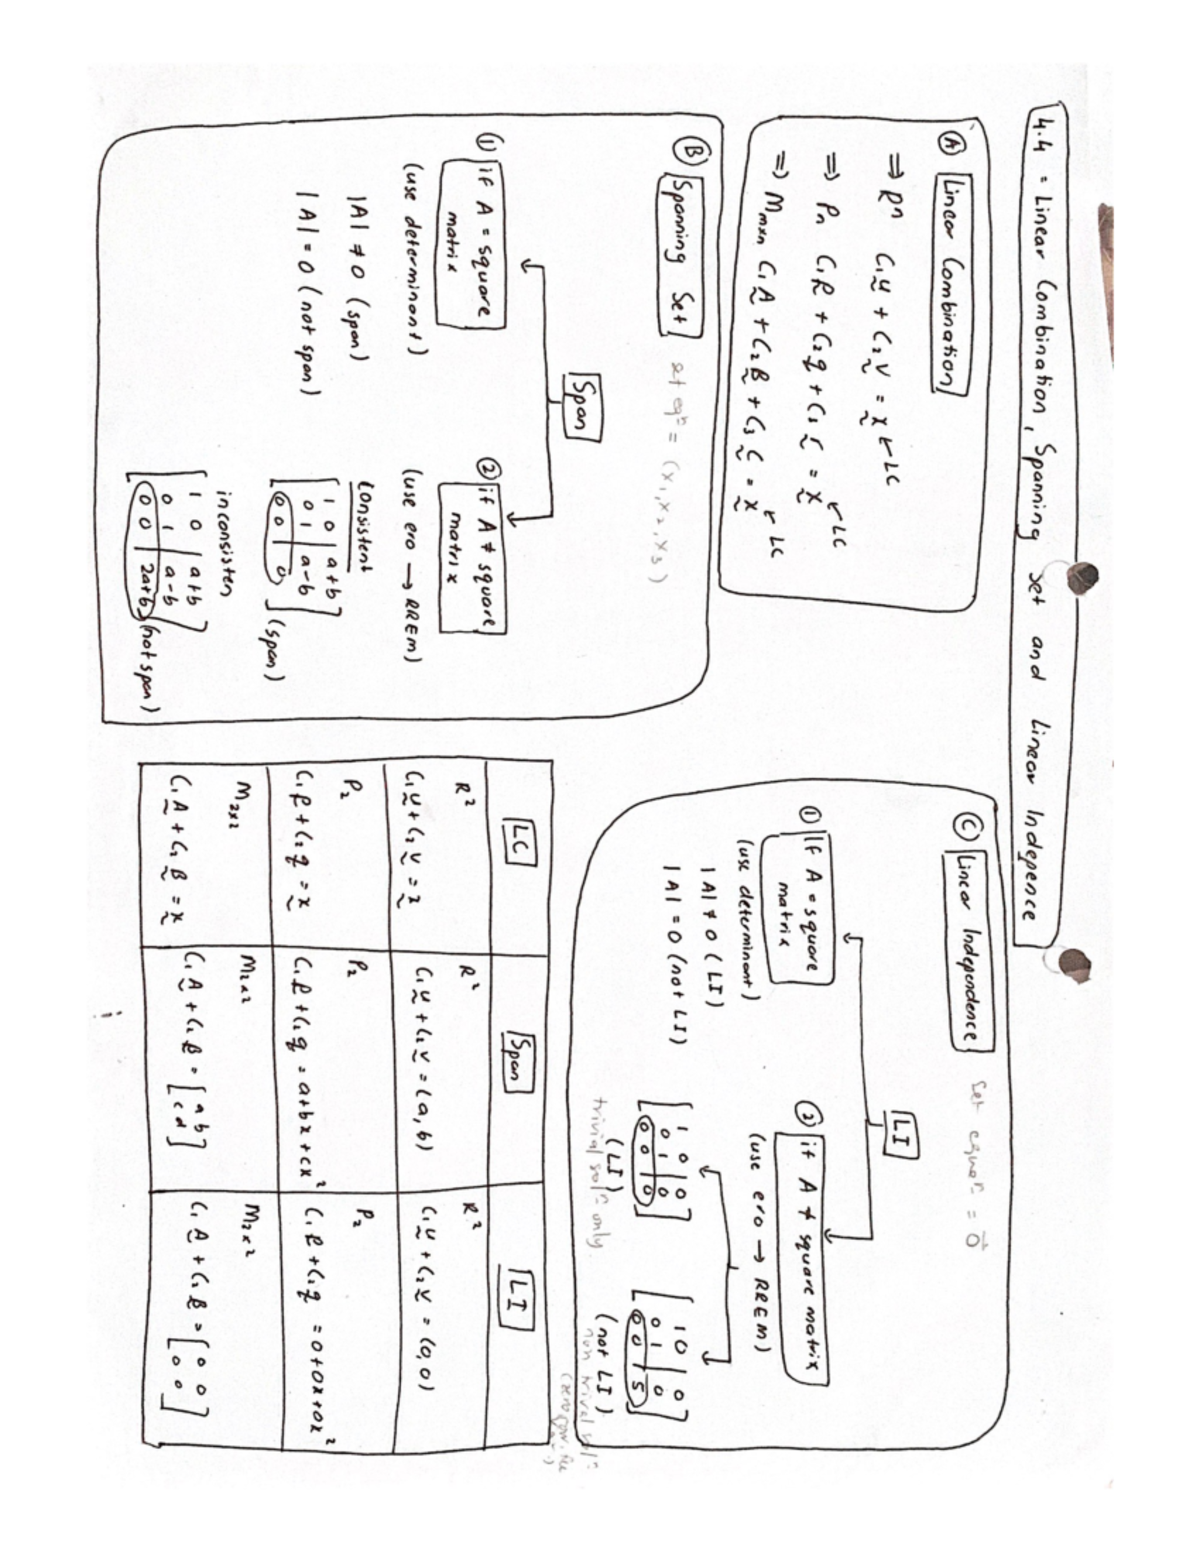 4.4 = Linear Combination, Spanning set and Linear Indepence
Ⓐ Linear Combination
⇒ Rn C₁u + C₂v = x ← LC
⇒ Pn C₁p + C₂q + C₃c = x ← LC
⇒ Mmxn C₁A + C₂B + C₃C = x ← LC
Ⓑ Spanning Set set eqⁿ = (x₁, x₂, x₃)
Span
① if A = square
matrix
(use determinant)
|A| ≠ 0 (span)
|A| = 0 (not span)
② if A ≠ square
matrix
(use ero → RREM)
consistent
1 0 | a+b
0 1 | a-b
0 0 | 0
(span)
inconsisten
1 0 | a+b
0 1 | a-b
0 0 | 2a+b
(not span)
Ⓒ Linear Independence Set equaⁿ = 0
LI
① If A = square
matrix
(use determinant)
|A| ≠ 0 (LI)
|A| = 0 (not LI)
② if A ≠ square matrix
(use ero → RREM)
1 0 | 0
0 1 | 0
0 0 | 0
(LI)
trivial solⁿ only
1 0 | 0
0 1 | 0
0 0 | 5
(not LI)
non trival solⁿ
LC Span LI
R² R² R²
C₁u + C₂v = x C₁u + C₂v = (a, b) C₁u + C₂v = (0,0)
P₂ P₂ P₂
C₁p + C₂q = x C₁p + C₂q = a+bx+cx² C₁p + C₂q = 0+0x+0x²
M₂ₓ₂ M₂ₓ₂ M₂ₓ₂
C₁A + C₂B = x C₁A + C₂B = [a b C₁A + C₂B = [0 0
c d] 0 0]